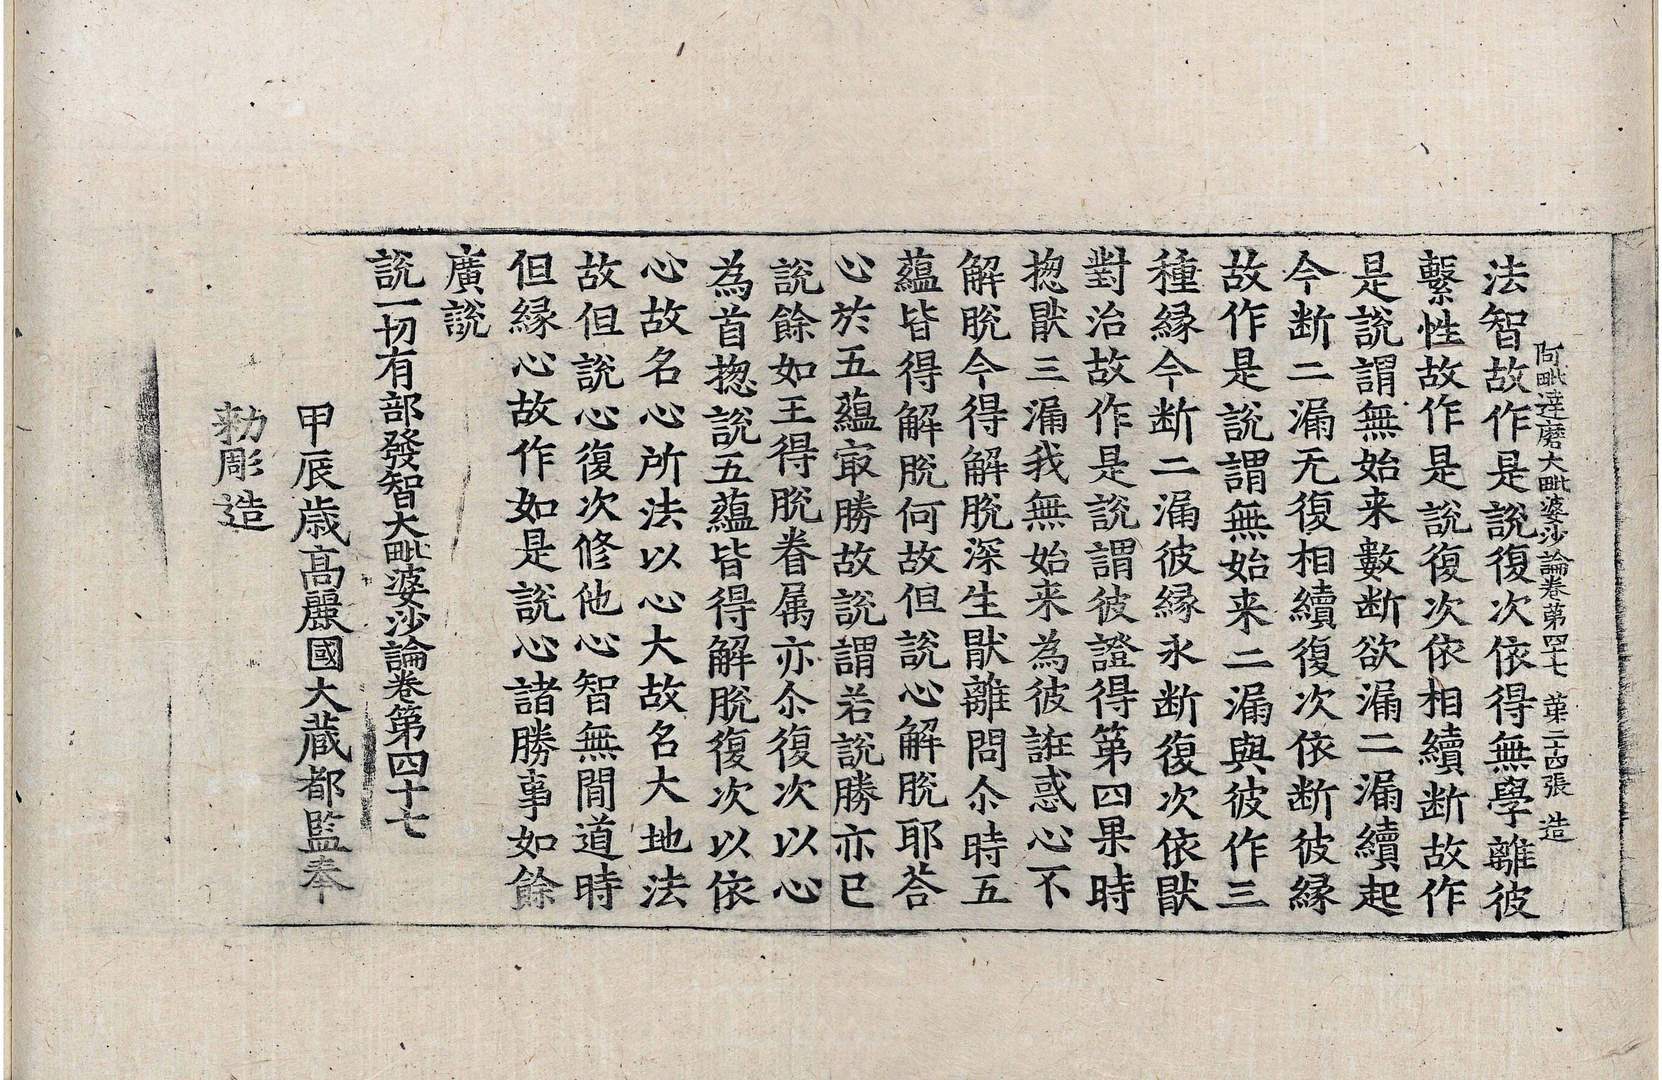 阿毗達磨大毗婆沙論卷第四十七 苐二十四張 造
法智故作是說復次依得無學離彼
繫性故作是說復次依相續断故作
是說謂無始来數断欲漏二漏續起
今断二漏无復相續復次依断彼縁
故作是說謂無始来二漏與彼作三
種縁今断二漏彼縁永断復次依猒
對治故作是說謂彼證得第四果時
揔猒三漏我無始来為彼誑惑心不
解脫今得解脫深生猒離問尒時五
蘊皆得解脫何故但說心解脫耶荅
心於五蘊㝡勝故說謂若說勝亦已
說餘如王得脫眷属亦尒復次以心
為首揔說五蘊皆得解脫復次以依
心故名心所法以心大故名大地法
故但說心復次修他心智無間道時
但縁心故作如是說心諸勝事如餘
廣說
說一切有部發智大毗婆沙論卷第四十七
甲辰歳高麗國大蔵都監奉
勅彫造